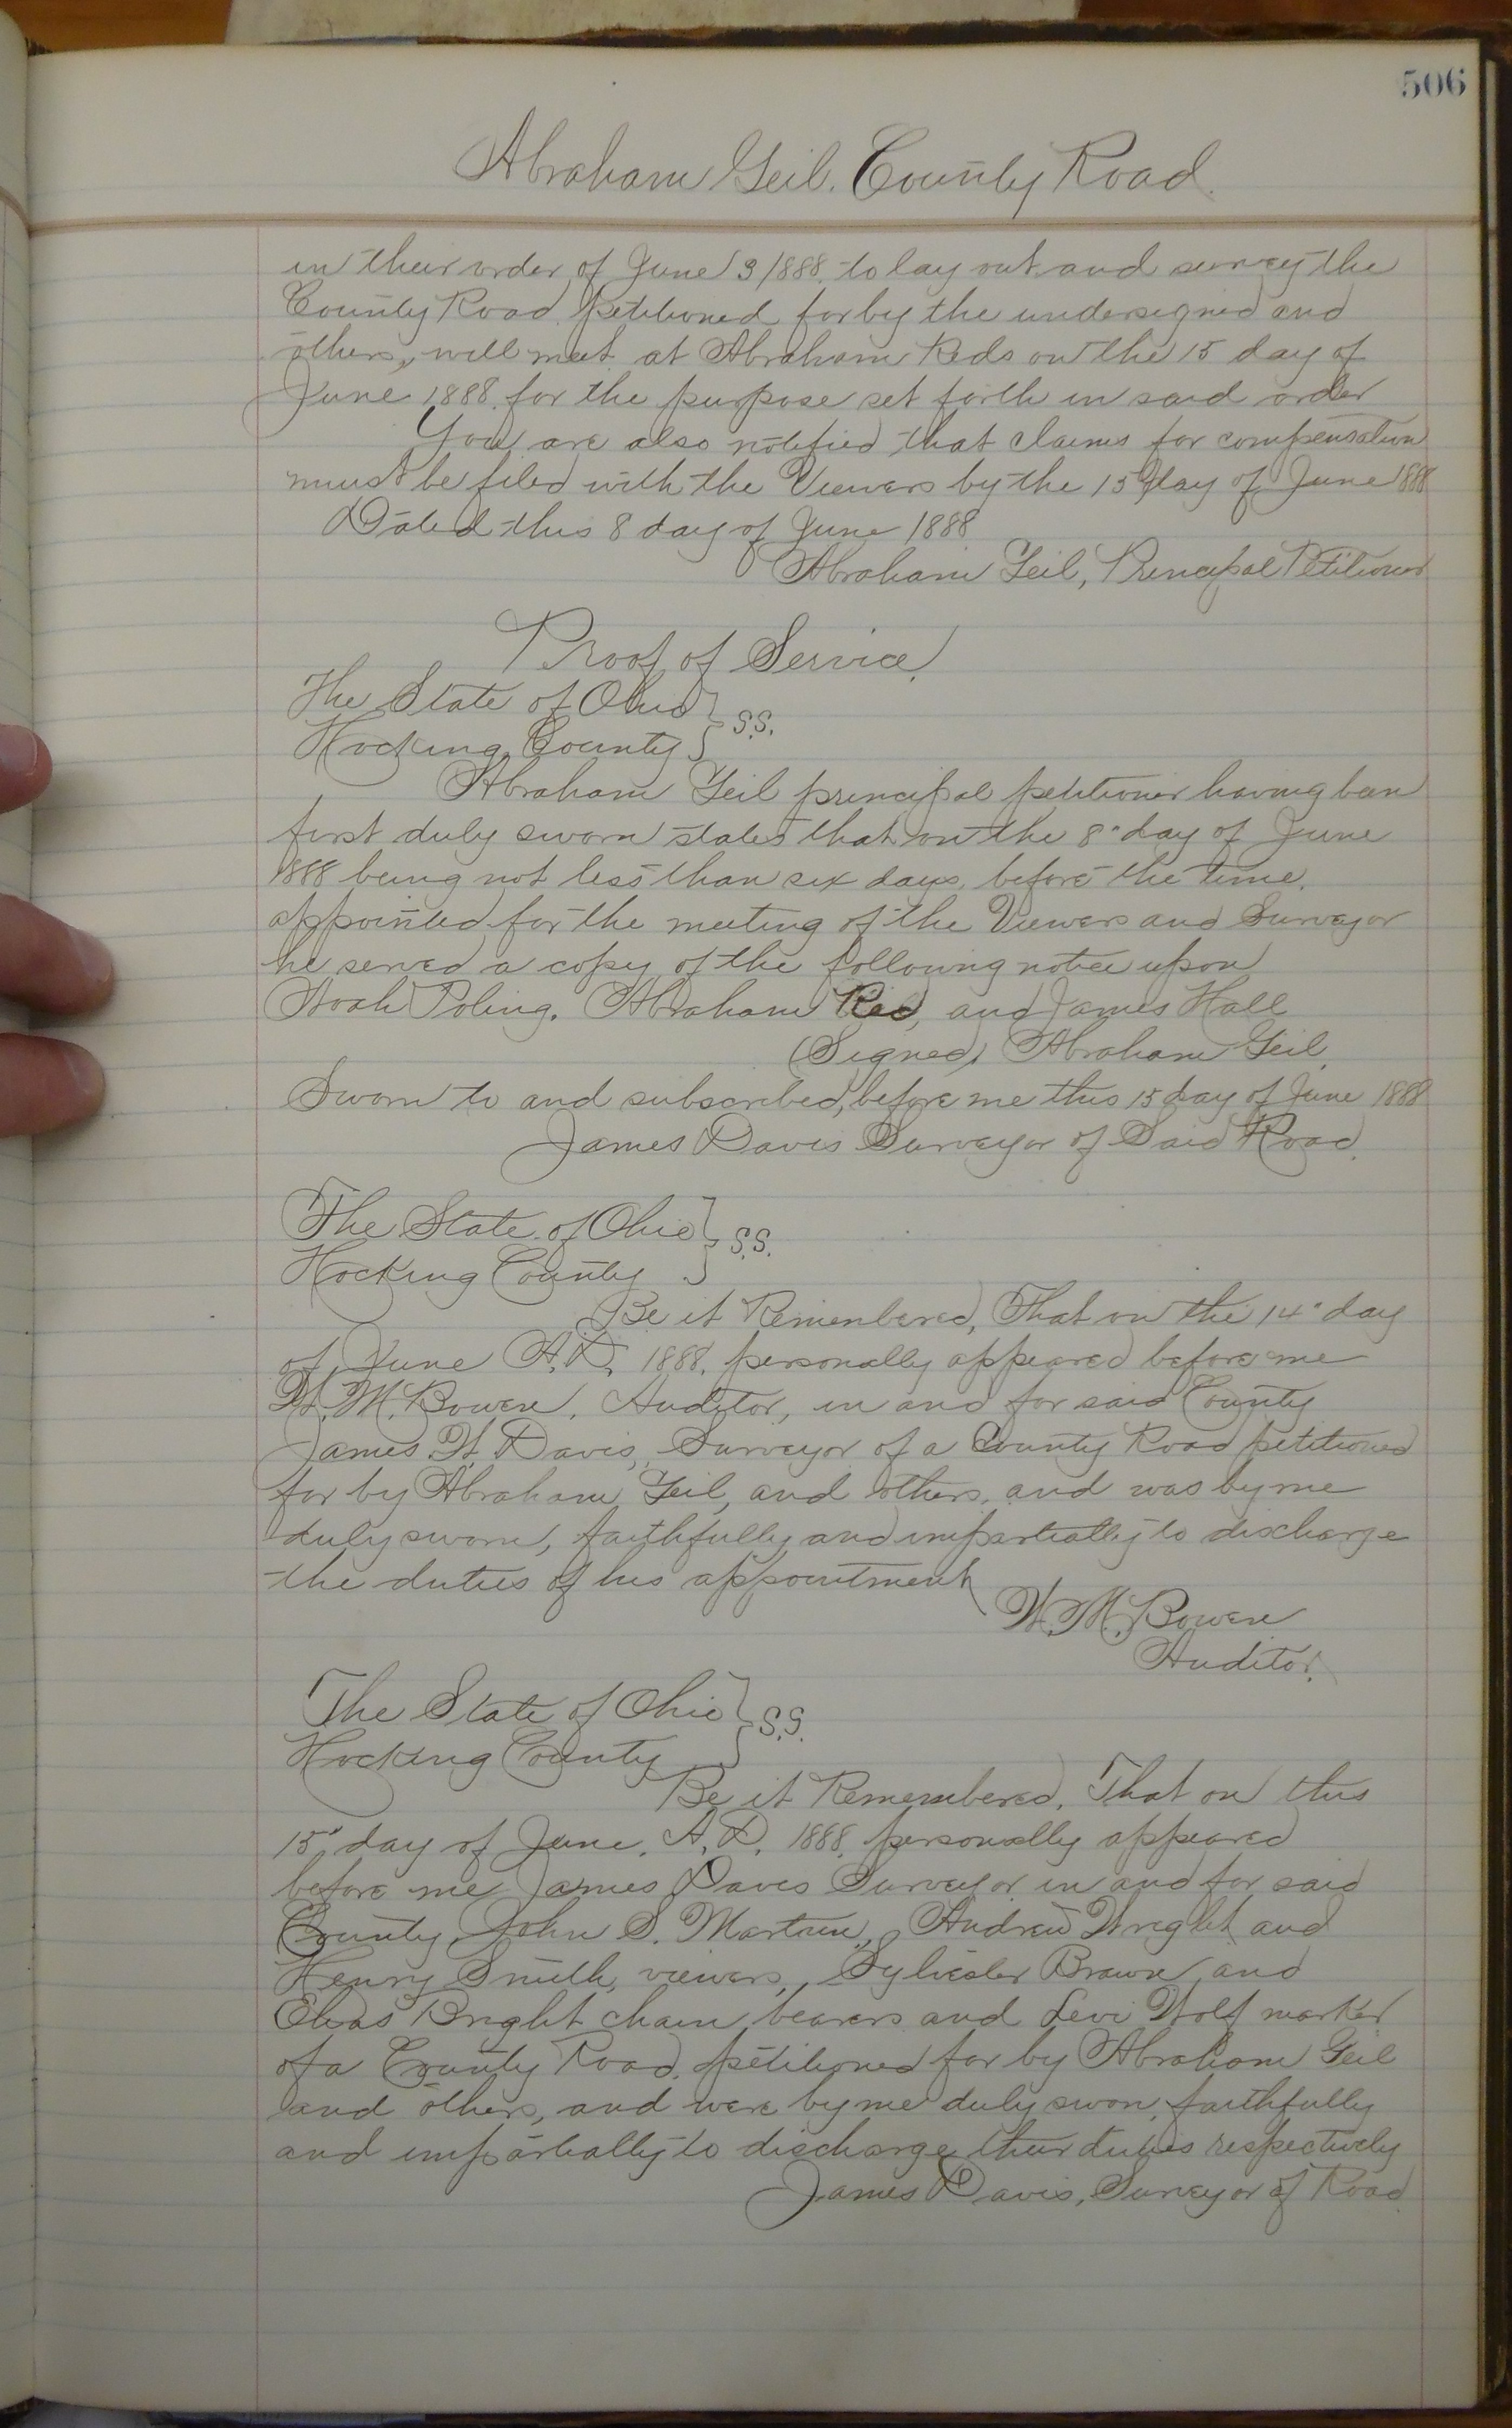 506
Abraham Geil. County Road.
in their order of June 9 1888. to lay out and survey the
County Road petitioned for by the undersigned and
others, will meet at Abraham Reds on the 15 day of
June 1888. for the purpose set forth in said order
You are also notified that claims for compensation
must be filed with the Viewers by the 15 day of June 1888
Dated this 8 day of June 1888
Abraham Geil, Principal Petitioner
Proof of Service.
The State of Ohio } S.S.
Hocking County }
Abraham Geil principal petitioner having been
first duly sworn states that on the 8" day of June
1888 being not less than six days, before the time,
appointed for the meeting of the Viewers and Surveyor
he served a copy of the following notice upon
Noah Poling. Abraham Red, and James Hall
(Signed) Abraham Geil.
Sworn to and subscribed, before me this 15 day of June 1888
James Davis Surveyor of Said Road.
The State of Ohio } S.S.
Hocking County }
Be it Remembered, That on the 14" day
of June A.D. 1888. personally appeared before me
W. M. Bowen, Auditor, in and for said County
James W. Davis, Surveyor of a County Road petitioned
for by Abraham Geil, and others, and was by me
duly sworn, faithfully and impartially to discharge
the duties of his appointment
W. M. Bowen
Auditor.
The State of Ohio } S.S.
Hocking County }
Be it Remembered, That on this
15" day of June. A.D. 1888. personally appeared
before me James Davis Surveyor in and for said
County John S. Martin, Andrew Wright and
Henry Smith, viewers, Sylvester Brown and
Elias Bright chain bearers and Levi Wolf marker
of a County Road, petitioned for by Abraham Geil
and others, and were by me duly swon, faithfully
and impartially to discharge their duties respectively
James Davis, Surveyor of Road.